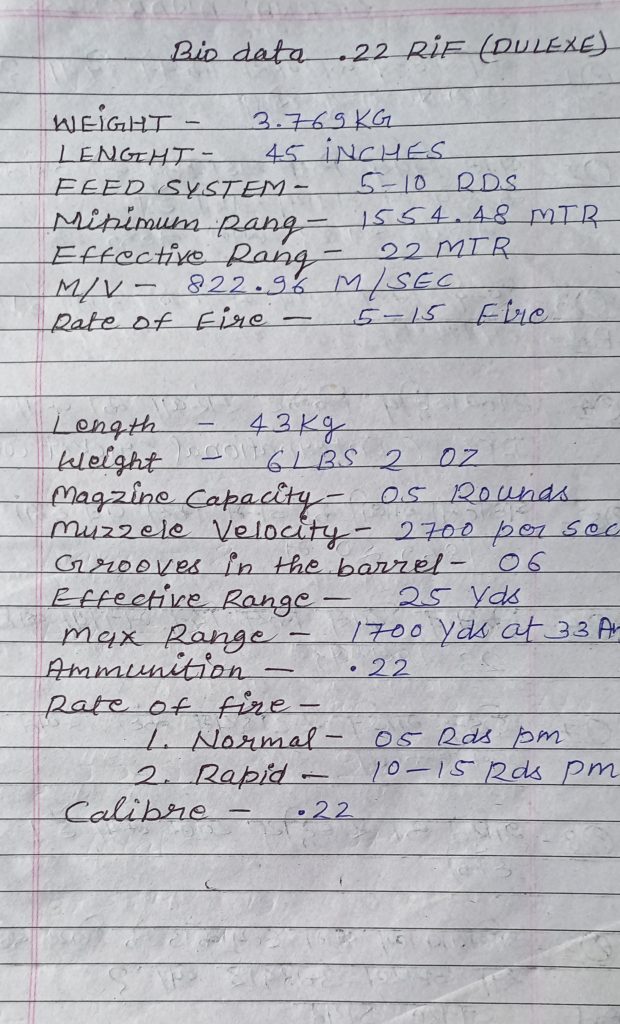 Bio data .22 RIF (DULEXE)
WEIGHT - 3.769KG
LENGTHT - 45 INCHES
FEED SYSTEM - 5-10 RDS
Minimum Rang - 1554.48 MTR
Effective Rang - 22 MTR
M/V - 822.96 M/SEC
Rate of Fire - 5-15 Fire
Length - 43 Kg
Weight - 6 LBS 2 OZ
Magzine Capacity - 05 Rounds
Muzzele Velocity - 2700 per sec
Grooves in the barrel - 06
Effective Range - 25 Yds
Max Range - 1700 Yds at 33
Ammunition - .22
Rate of fire -
1. Normal - 05 Rds pm
2. Rapid - 10-15 Rds pm
Calibre - .22